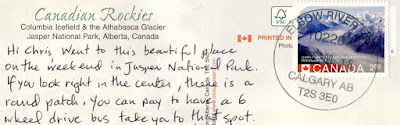 Canadian Rockies
Columbia Icefield & the Athabasca Glacier
Jasper National Park, Alberta, Canada
Hi Chris Went to this beautiful place
on the weekend in Jasper National Park.
If you look right in the center, there is a
round patch. You can pay to have a 6
wheel drive bus take you to that spot.
FSC
PRINTED IN
Photo
ELBOW RIVER
CALGARY AB
T2S 3E0
CANADA